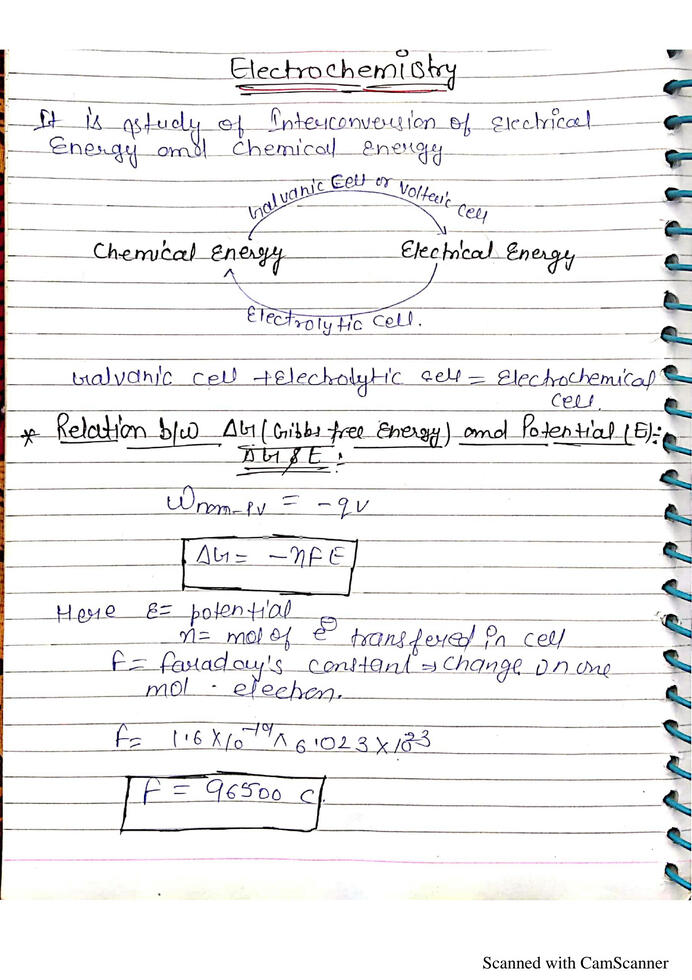 Electrochemistry
It is a study of Interconversion of Electrical
Energy and Chemical Energy
Galvanic Cell or Voltaic cell
Chemical Energy Electrical Energy
Electrolytic Cell.
Galvanic cell + Electrolytic cell = Electrochemical
Cell.
* Relation b/w ΔG (Gibbs free Energy) and Potential (E):
ΔG & E :
Wnon-PV = -qv
ΔG = -nFE
Here E = potential
n = mol of e⊖ transfered in cell
F = faraday's constant ⇒ Change on one
mol . electron.
F = 1.6 X 10⁻¹⁹ X 6.023 X 10²³
F = 96500 C.
Scanned with CamScanner